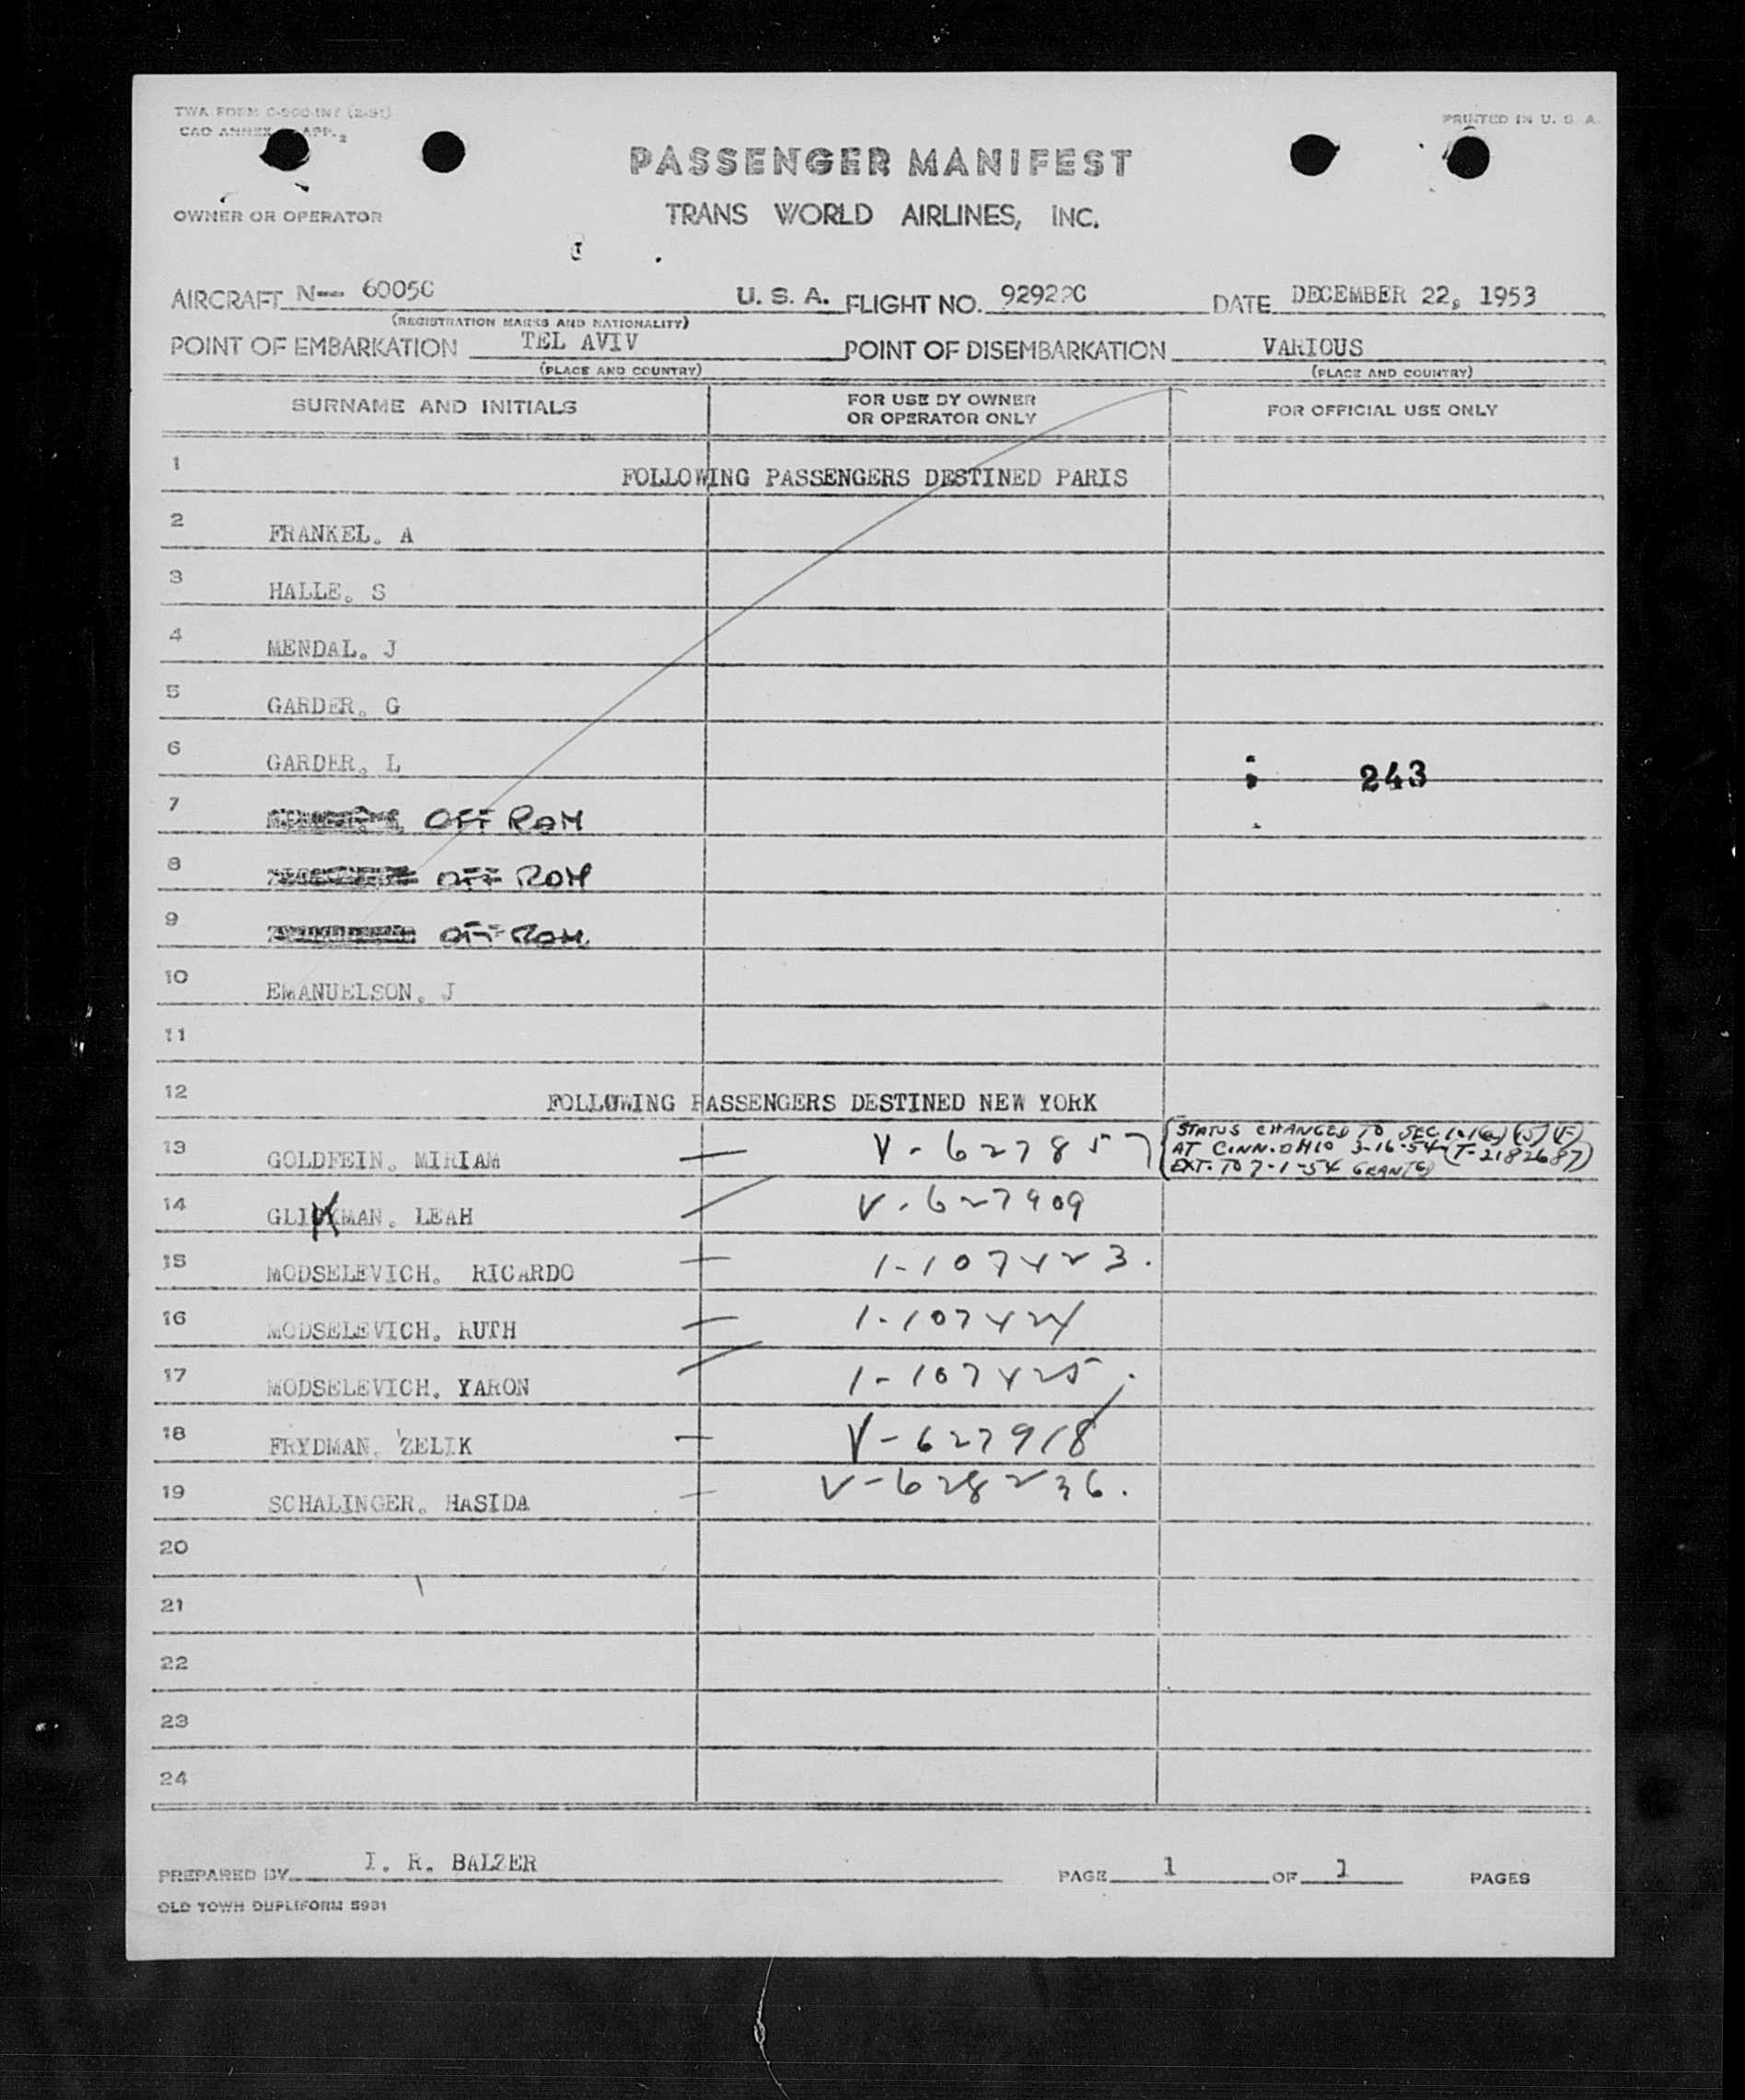 TWA FORM C-900-INT (2-51)
CAO ANNEX APP. 2
PRINTED IN U. S. A.
PASSENGER MANIFEST
OWNER OR OPERATOR
TRANS WORLD AIRLINES, INC.
AIRCRAFT N-- 6005C U. S. A. FLIGHT NO. DATE DECEMBER 22, 1953
(REGISTRATION MARKS AND NATIONALITY)
POINT OF EMBARKATION TEL AVIV POINT OF DISEMBARKATION VARIOUS
(PLACE AND COUNTRY) (PLACE AND COUNTRY)
SURNAME AND INITIALS FOR USE BY OWNER OR OPERATOR ONLY FOR OFFICIAL USE ONLY
1 FOLLOWING PASSENGERS DESTINED PARIS
2 FRANKEL. A
3 HALLE. S
4 MENDAL. J
5 GARDER. G
6 GARDER. L 243
7 OFF ROM
8 OFF ROM
9 OFF ROM
10 EMANUELSON. J
11
12 FOLLOWING PASSENGERS DESTINED NEW YORK
STATUS CHANGED TO SEC.
13 GOLDFEIN. MIRIAM V-627857 AT CINN. OHIO 3-16-54 (T-2182687)
EXT. TO 7-1-54 GRANTED
14 GLIKMAN. LEAH V-627909
15 MODSELEVICH. RICARDO 1-107423.
16 MODSELEVICH. RUTH 1-107424
17 MODSELEVICH. YARON 1-107425
18 FRYDMAN. ZELIK V-627918
19 SCHALINGER. HASIDA V-628236.
20
21
22
23
24
PREPARED BY I. R. BALZER PAGE 1 OF 1 PAGES
OLD TOWN DUPLIFORM 5931